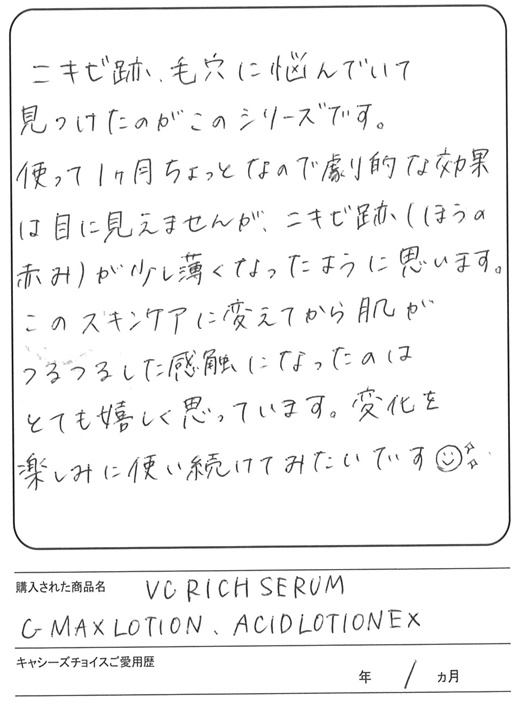 ニキビ跡、毛穴に悩んでいて
見つけたのがこのシリーズです。
使って1ヶ月ちょっとなので劇的な効果
は目に見えませんが、ニキビ跡(ほうの
赤み)が少し薄くなったように思います。
このスキンケアに変えてから肌が
つるつるした感触になったのは
とても嬉しく思っています。変化を
楽しみに使い続けてみたいです
購入された商品名 VC RICH SERUM
C-MAX LOTION、ACID LOTION EX
キャシーズチョイスご愛用歴
年 / ヵ月